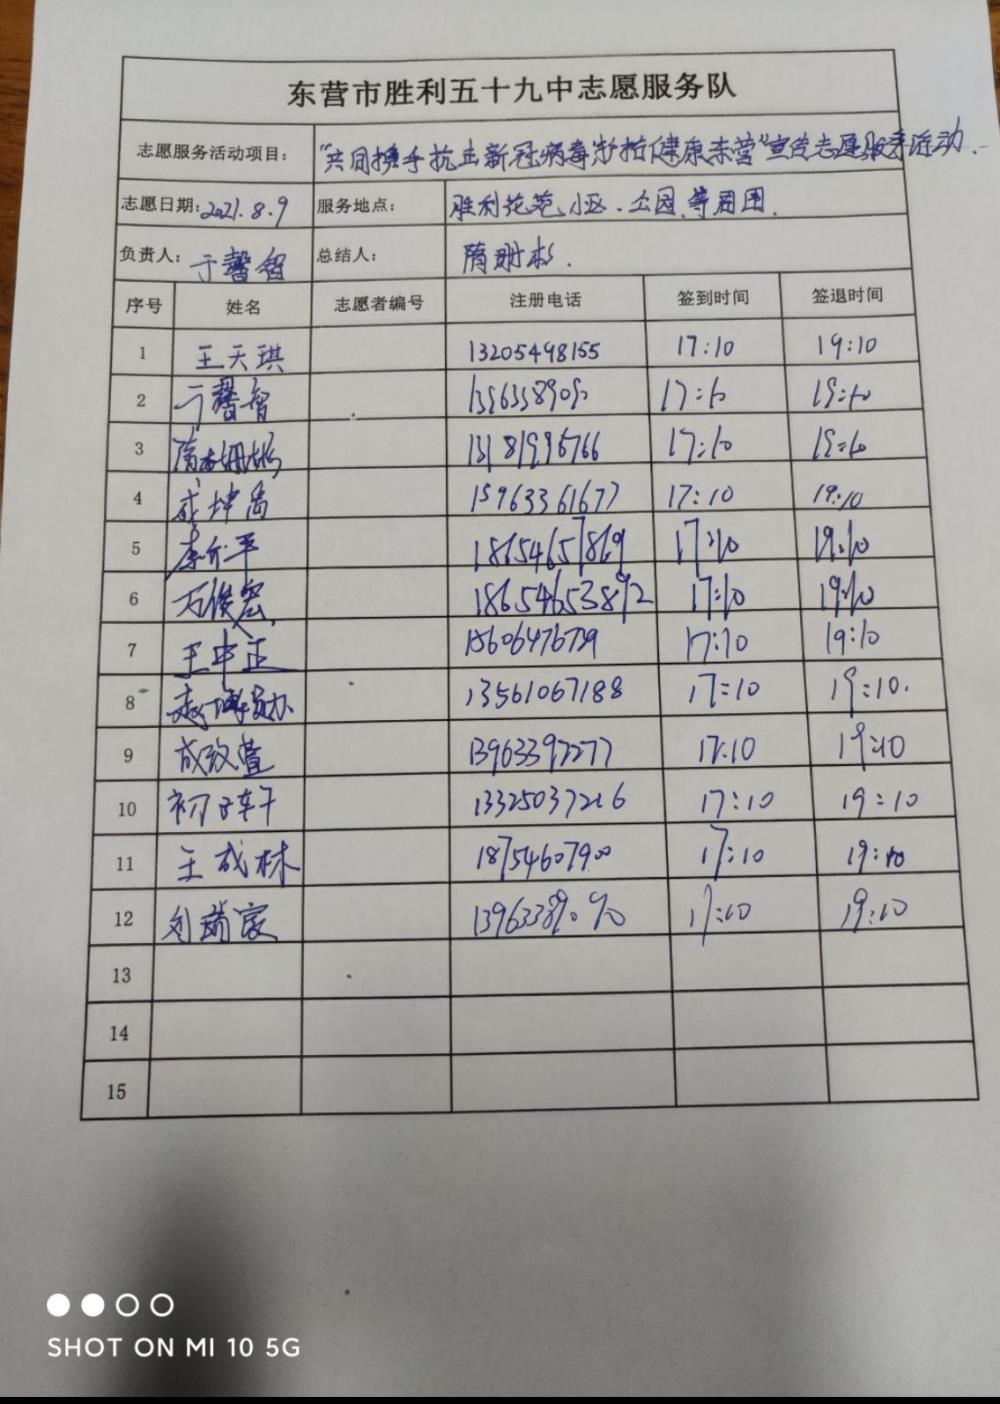 东营市胜利五十九中志愿服务队
志愿服务活动项目: "共同携手抗击新冠病毒 健康东营"宣传志愿服务活动.
志愿日期: 2021.8.9 服务地点: 胜利花苑小区.公园.等周围.
负责人: 于馨智 总结人:
序号 姓名 志愿者编号 注册电话 签到时间 签退时间
1 王天琪 13205498155 17:10 19:10
2 于馨智 17:10 19:10
3 13181995766 17:10 19:10
4 成坤禹 15963361677 17:10 19:10
5 18654657869 17:10 19:10
6 万俊宏 18654653892 17:10 19:10
7 王中正 17:10 19:10
8 13561067188 17:10 19:10.
9 成致萱 13963397277 17:10 19:10
10 初 13325037216 17:10 19:10
11 王成林 18754607900 17:10 19:10
12 17:10 19:10
13
14
15
SHOT ON MI 10 5G